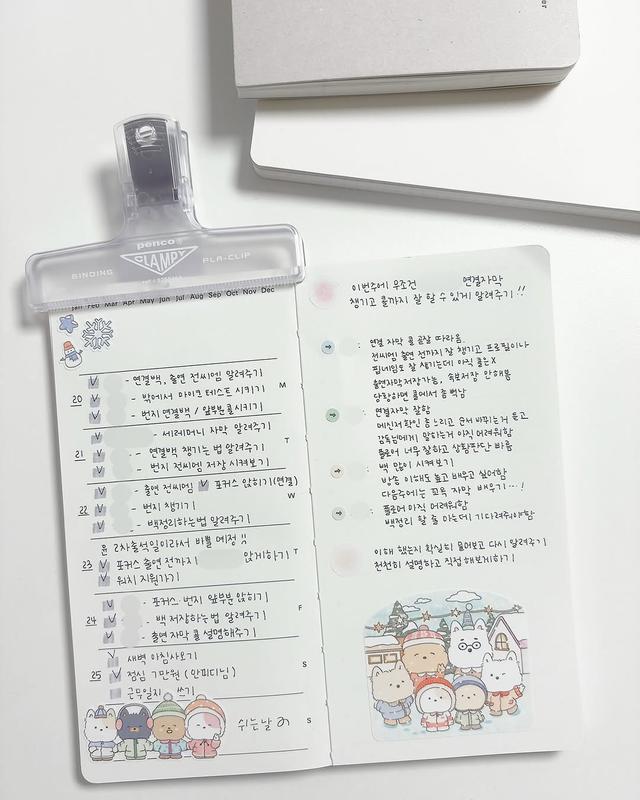 er
penco®
CLAMPY
BINDING PLA-CLIP
Jan Feb Mar Apr May Jun Jul Aug Sep Oct Nov Dec
20 M
- 연결백, 출연 전씨엠 알려주기
- 밖에서 마이크 테스트 시키기
- 번지 연결백 / 앞부분 콜시키기
21 T
- 세레머니 자막 알려주기
- 연결백 챙기는 법 알려주기
- 번지 전씨엠 저장 시켜보기
22 W
- 출연 전씨엠 포커스 앉히기(연결)
- 번지 챙기기
- 백정리하는법 알려주기
23 T
윤 2차출석일이라서 바쁠 예정!!
포커스 출연 전까지 앉게하기
위치 지원가기
24 F
- 포커스·번지 앞부분 앉히기
- 백 저장하는법 알려주기
- 출연 자막 콜 설명해주기
25 S
새벽 아침사오기
점심 7만원 (안피디님)
근무일지 쓰기
쉬는날 S
이번주에 무조건 연결자막
챙기고 콜까지 잘 할 수 있게 알려주기!!
: 연결 자막 콜 곧잘 따라옴.
전씨엠 출연 전까지 잘 챙기고 프로필이나
핍네임도 잘 챙기는데 아직 콜은X
출연자막저장가능, 속보저장 안해봄
당황하면 콜에서 좀 빡남
: 연결자막 잘함
메신저확인 좀 느리고 순서 바뀌는거 듣고
감독님에게 말하는거 아직 어려워함
플로어 너무 잘하고 상황판단 바름
: 백 많이 시켜보기
방송 이해도 높고 배우고 싶어함
다음주에는 꼬옥 자막 배우기…!
: 플로어 아직 어려워함
백정리 할 줄 아는데 기다려줘야함
이해 했는지 확실히 물어보고 다시 알려주기
천천히 설명하고 직접 해보게하기